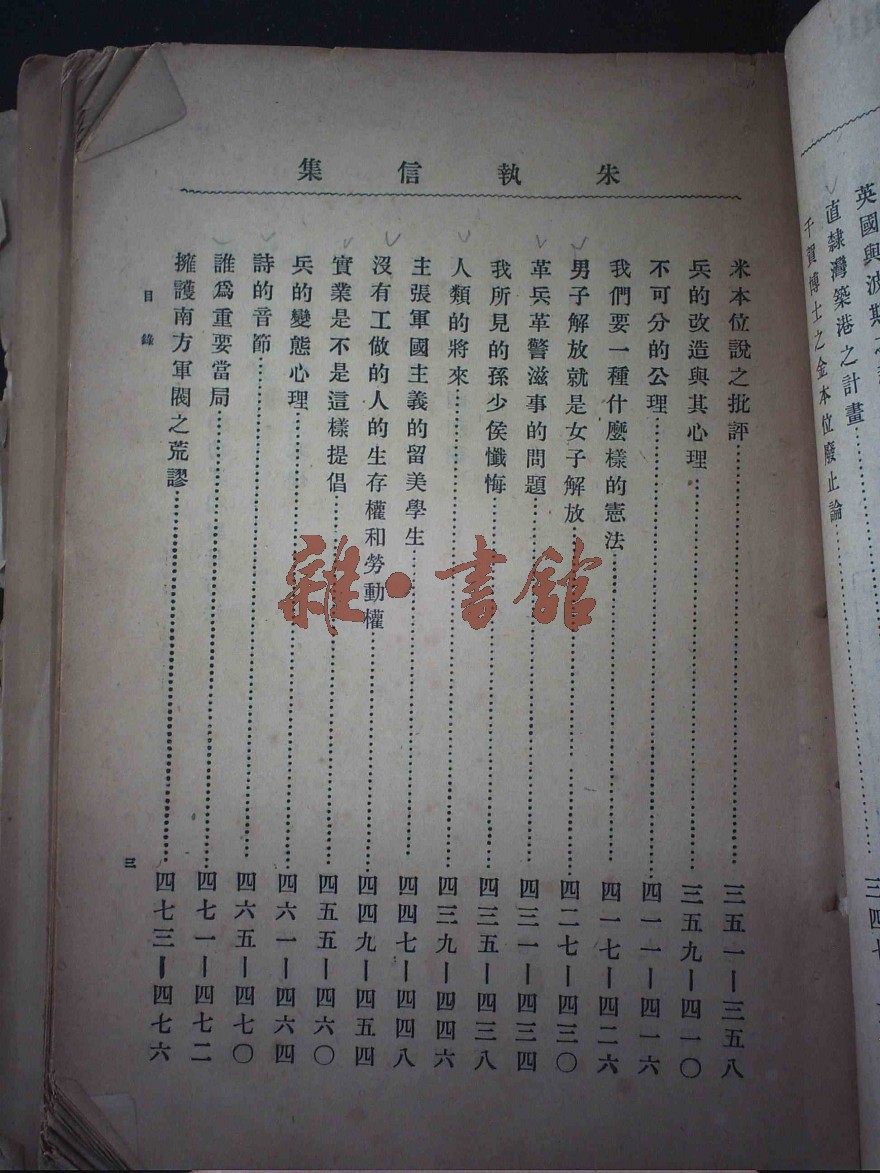 朱執信集
米本位說之批評⋯⋯三五一—三五八
兵的改造與其心理⋯⋯三五九—四一〇
不可分的公理⋯⋯四一一—四一六
我們要一種什麼樣的憲法⋯⋯四一七—四二六
男子解放就是女子解放⋯⋯四二七—四三〇
革兵革警滋事的問題⋯⋯四三一—四三四
我所見的孫少侯懺悔⋯⋯四三五—四三八
人類的將來⋯⋯四三九—四四六
主張軍國主義的留美學生⋯⋯四四七—四四八
沒有工做的人的生存權和勞動權⋯⋯四四九—四五四
實業是不是這樣提倡⋯⋯四五五—四六〇
兵的變態心理⋯⋯四六一—四六四
詩的音節⋯⋯四六五—四七〇
誰爲重要當局⋯⋯四七一—四七二
擁護南方軍閥之荒謬⋯⋯四七三—四七六
目錄
三
英國與波斯之
直隸灣築港之計畫
千賀博士之金本位廢止論
雜·書館